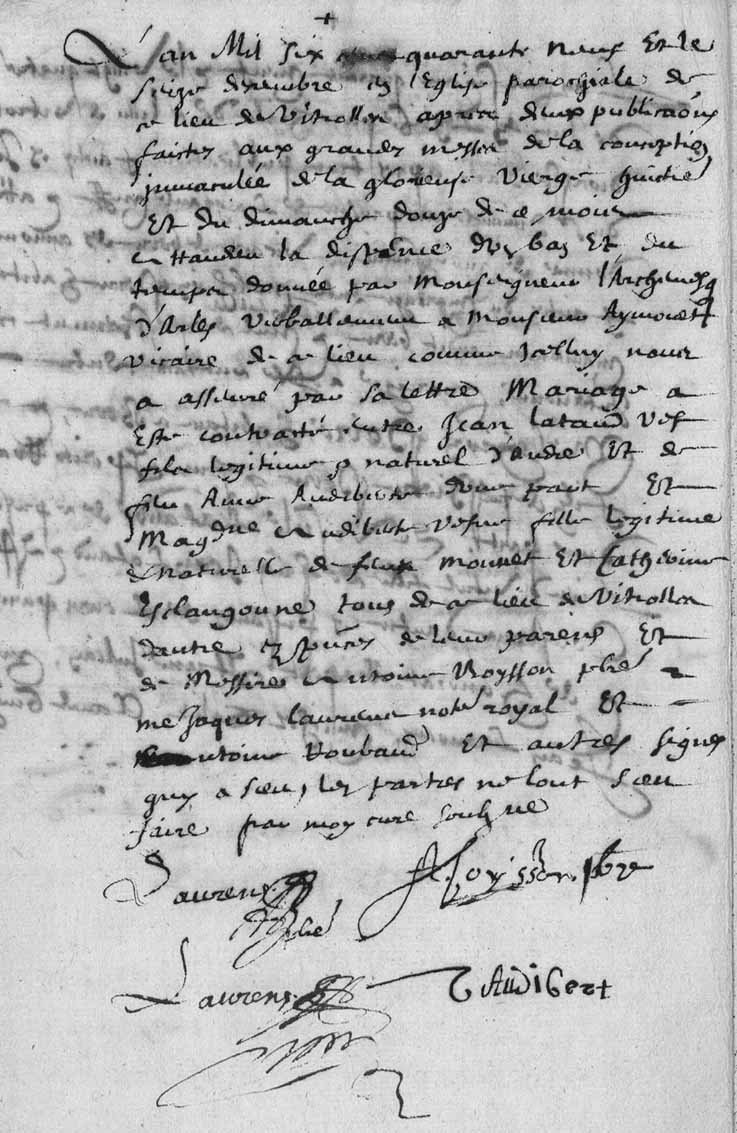 L'an Mil six quarante neuf Et le
seize decembre en l'Eglise parochiale de
ce lieu de Vitrolles apres deux publicaons
faictes aux grandes messes de la conception
immaculée de la glorieuse Vierge huictie
Et du dimanche douze de ce mois
attandeu la dispence Et du
temps donnée par Monseigneur l'Archevesq
d'Arles verballement a Monsieur Aymoiet
vicaire de ce lieu comme Icelluy nous
a asseuré par sa lettre Mariage a
Este contracté entre Jean lataud vef
filz legitime & naturel d'Andre Et de
feue Anne Audiberte d'une part Et
Magdne Audiberte vesve fille legitime
& naturelle de feux monnet Et Catherine
Esclangonne tous de ce lieu de Vitrolles
dautre en pnces de leurs parens Et
de Messire Antoine Roysson pbre
me Jaques laurens notre royal Et
Antoine Roubaud Et autres signes
quy a sceu, les parties ne lont sceu
faire par moy cure soubzne
Laurens
A Royssson pbre
Laurens
Audibert